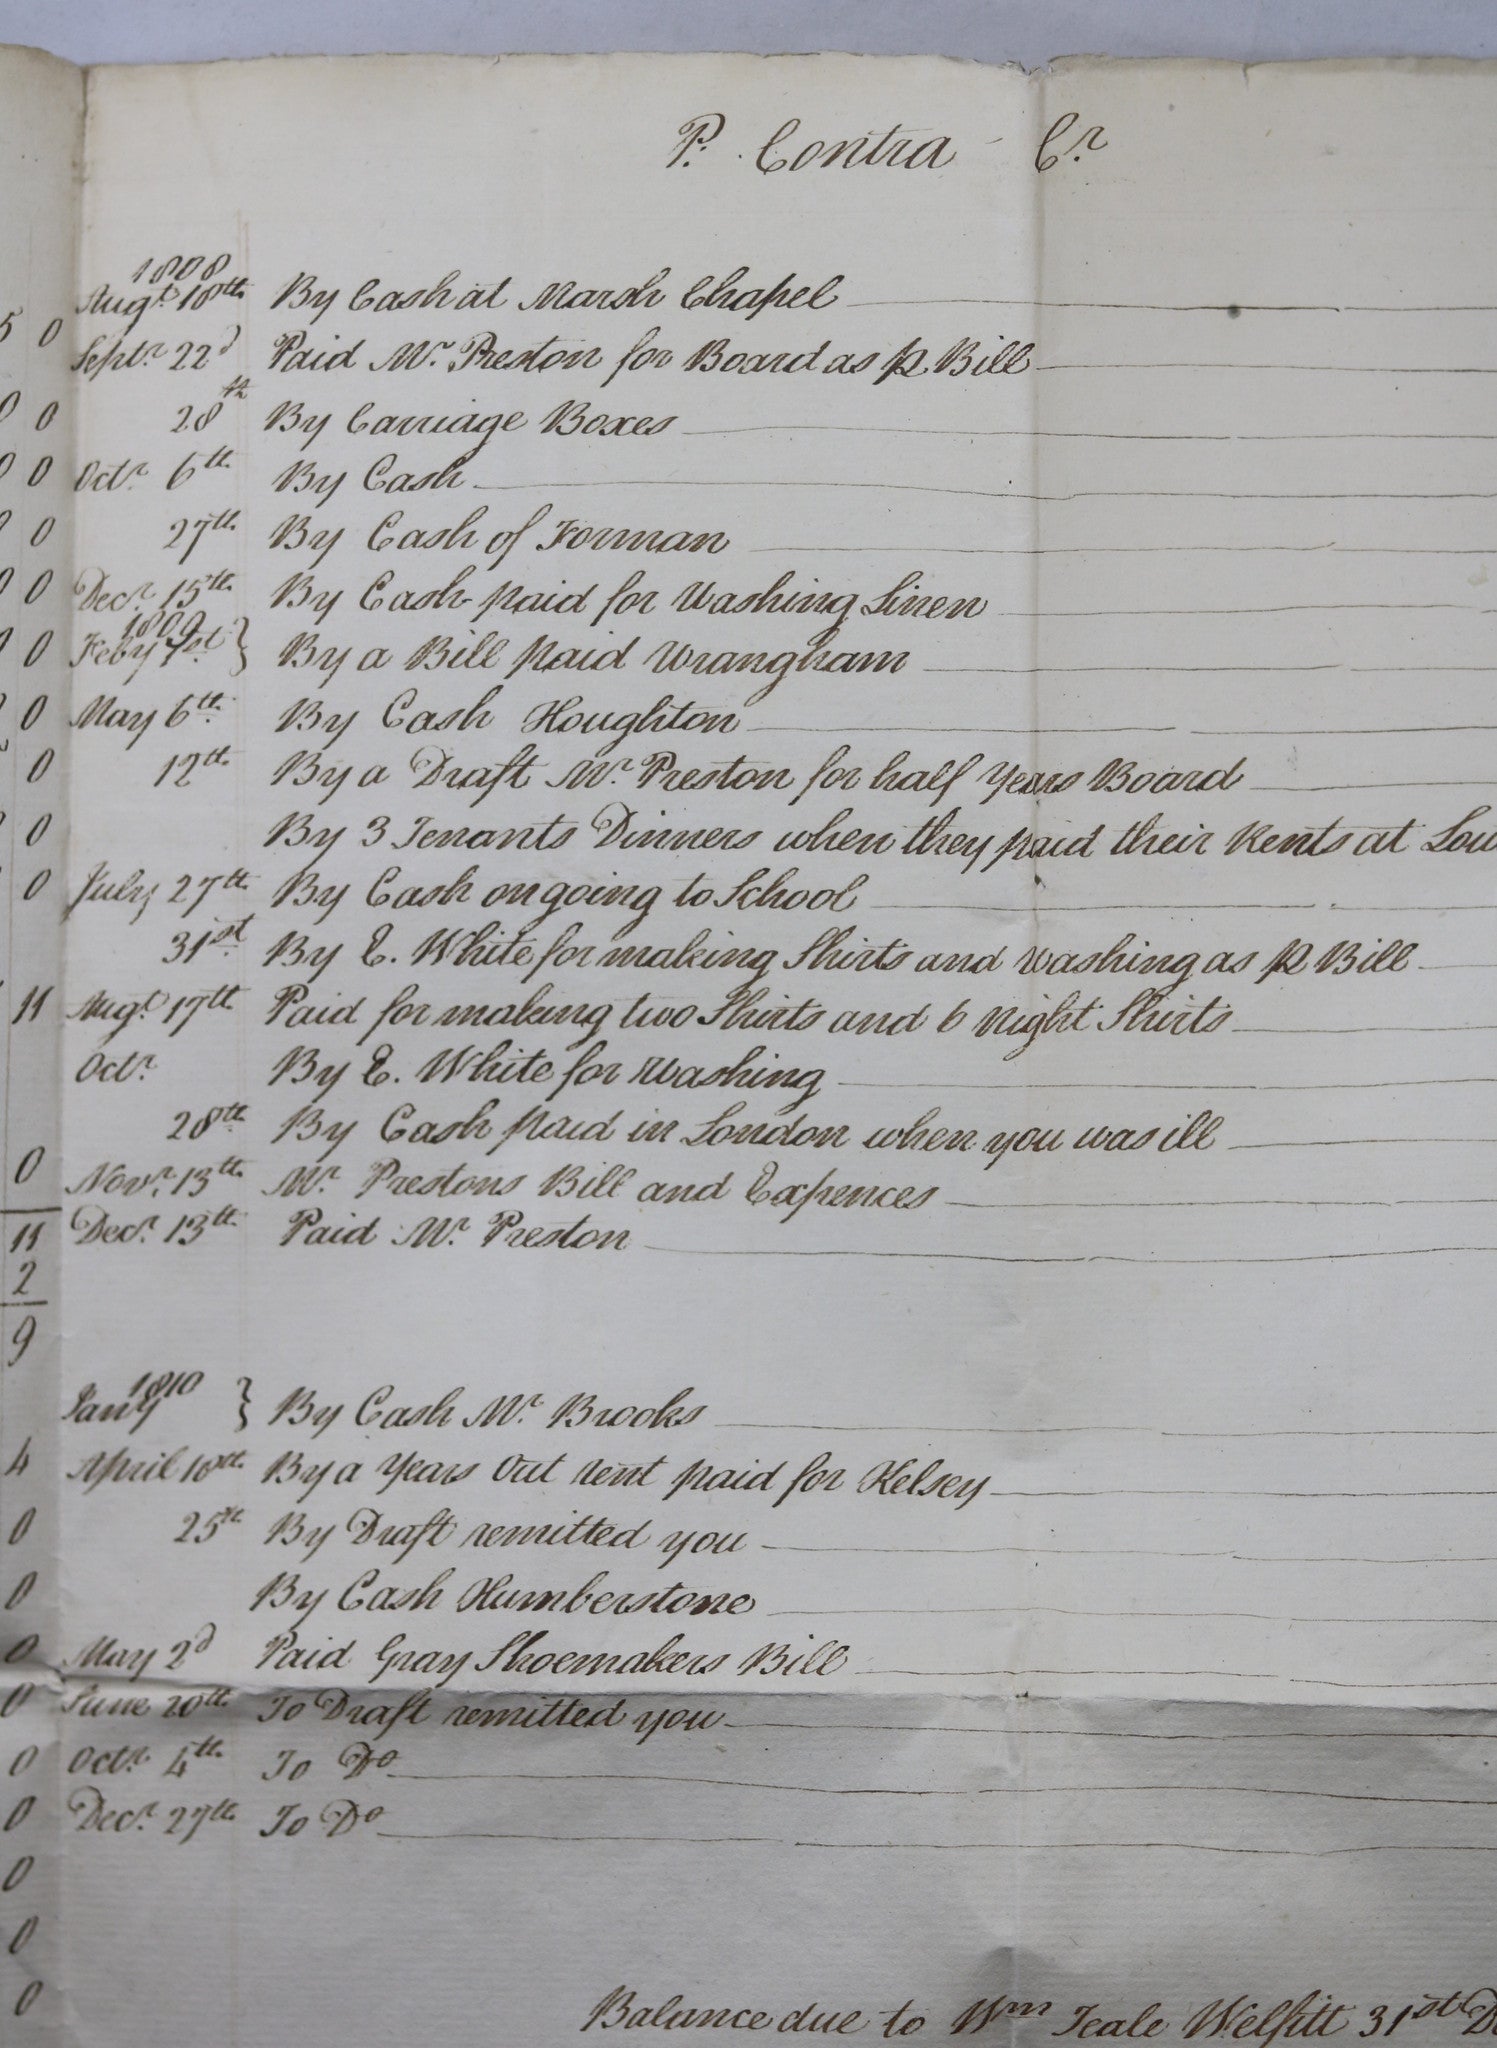 P. Contra Cr.
1808
Augt. 18th By Cash at Marsh Chapel
5 0
Septr. 22d Paid Mr. Preston for Board as p Bill
0 0 28th By Carriage Boxes
0 0 Octr. 6th By Cash
0 0 27th By Cash of Forman
0 0 Decr. 15th By Cash paid for Washing Linen
1809
0 0 Feby 1st } By a Bill paid Wrangham
0 May 6th By Cash Houghton
0 12th By a Draft Mr. Preston for half Years Board
0 By 3 Tenants Dinners when they paid their Rents at Lou
0 July 27th By Cash on going to School
31st By E. White for making Shirts and washing as p Bill
11 Augt. 17th Paid for making two Shirts and 6 Night Shirts
Octr. By E. White for Washing
28th By Cash paid in London when you was ill
0 Novr. 13th Mr. Prestons Bill and Expences
11 Decr. 13th Paid Mr. Preston
2
9
1810
Jany } By Cash Mr. Brooks
4 April 10th By a Years Out rent paid for Kelsey
0 25th By Draft remitted you
0 By Cash Humberstone
0 May 2d Paid Gray Shoemakers Bill
0 June 20th To Draft remitted you
0 Octr. 4th To Do
0 Decr. 27th To Do
0
0
0
Balance due to Wm Teale Welfitt 31st De